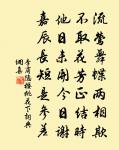 流莺舞蝶两相欺
不取花芳正结时
他日未开今日谢
嘉辰长短是参差
李商隐樱桃花下词典
網集